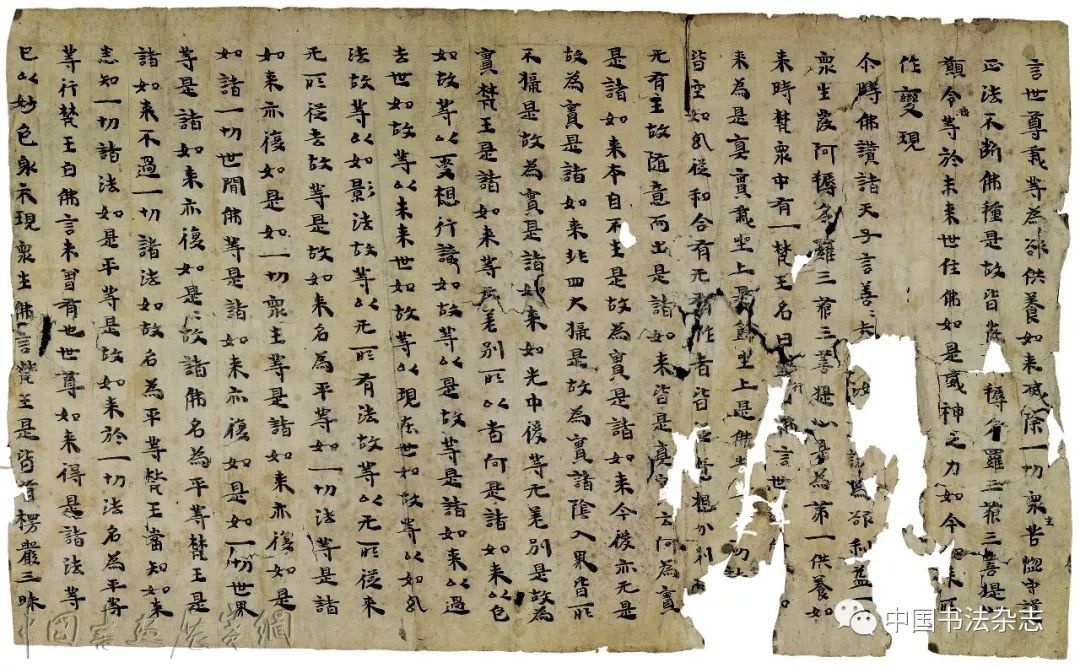 言世尊我等為欲供養如来滅除一切眾生苦惱守護
正法不断佛種是故皆發耨多羅三藐三菩提心
願令我等於未来世住佛如是威神之力如今来所
作變現
尒時佛讚諸天子言善〻汝說為欲利益
眾生發阿耨多羅三藐三菩提心是為第一供養如
来時梵眾中有一梵王名曰等行言世
来為是真實我坐上是餘坐上是佛一切諸法
皆空如幻從和合有无有作者皆憶想分別
无有主故隨意而出是諸如来皆是真實云何為實
是諸如来本自不生是故為實是諸如来今後亦无是
故為實是諸如来非四大攝是故為實諸陰入界皆所
不攝是故為實是諸如来如先中後等无差別是故為
實梵王是諸如来等无差別所以者何是諸如来以色
如故等以受想行識如故等以是故等是諸如来以過
去世如故等以未来世如故等以現在世如故等以如幻
法故等以如影法故等以无所有法故等以无所從来
无所從去故等是故如来名為平等如一切法等是諸
如来亦復如是如一切眾生等是諸如来亦復如是
如諸一切世間佛等是諸如来亦復如是如一切世界
等是諸如来亦復如是〻故諸佛名為平等梵王是
諸如来不過一切諸法如故名為平等梵王當知如来
悉知一切諸法如是平等是故如来於一切法名為平等
等行梵王白佛言未曾有也世尊如来得是諸法等
已以妙色身示現眾生佛言梵王是皆首楞嚴三昧
中国书法杂志
中國書法藝術網